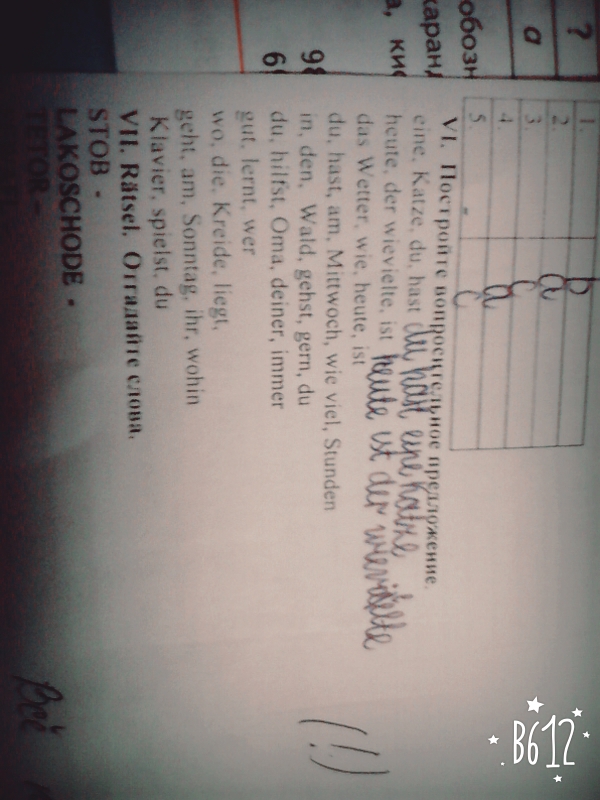 ?
а
обозн
каранд
а, кис
98
6
1.
2.
3.
4.
5.
b
a
c
a
c
VI. Постройте вопросительное предложение.
eine, Katze, du, hast du hast eine Katze
heute, der wievielte, ist heute ist der wievielte
das Wetter, wie, heute, ist
du, hast, am, Mittwoch, wie viel, Stunden
in, den, Wald, gehst, gern, du
du, hilfst, Oma, deiner, immer
gut, lernt, wer
wo, die, Kreide, liegt,
geht, am, Sonntag, ihr, wohin
Klavier, spielst, du
VII. Rätsel. Отгадайте слова.
STOB -
LAKOSCHODE -
TETOR -
(!)
Всё
B612